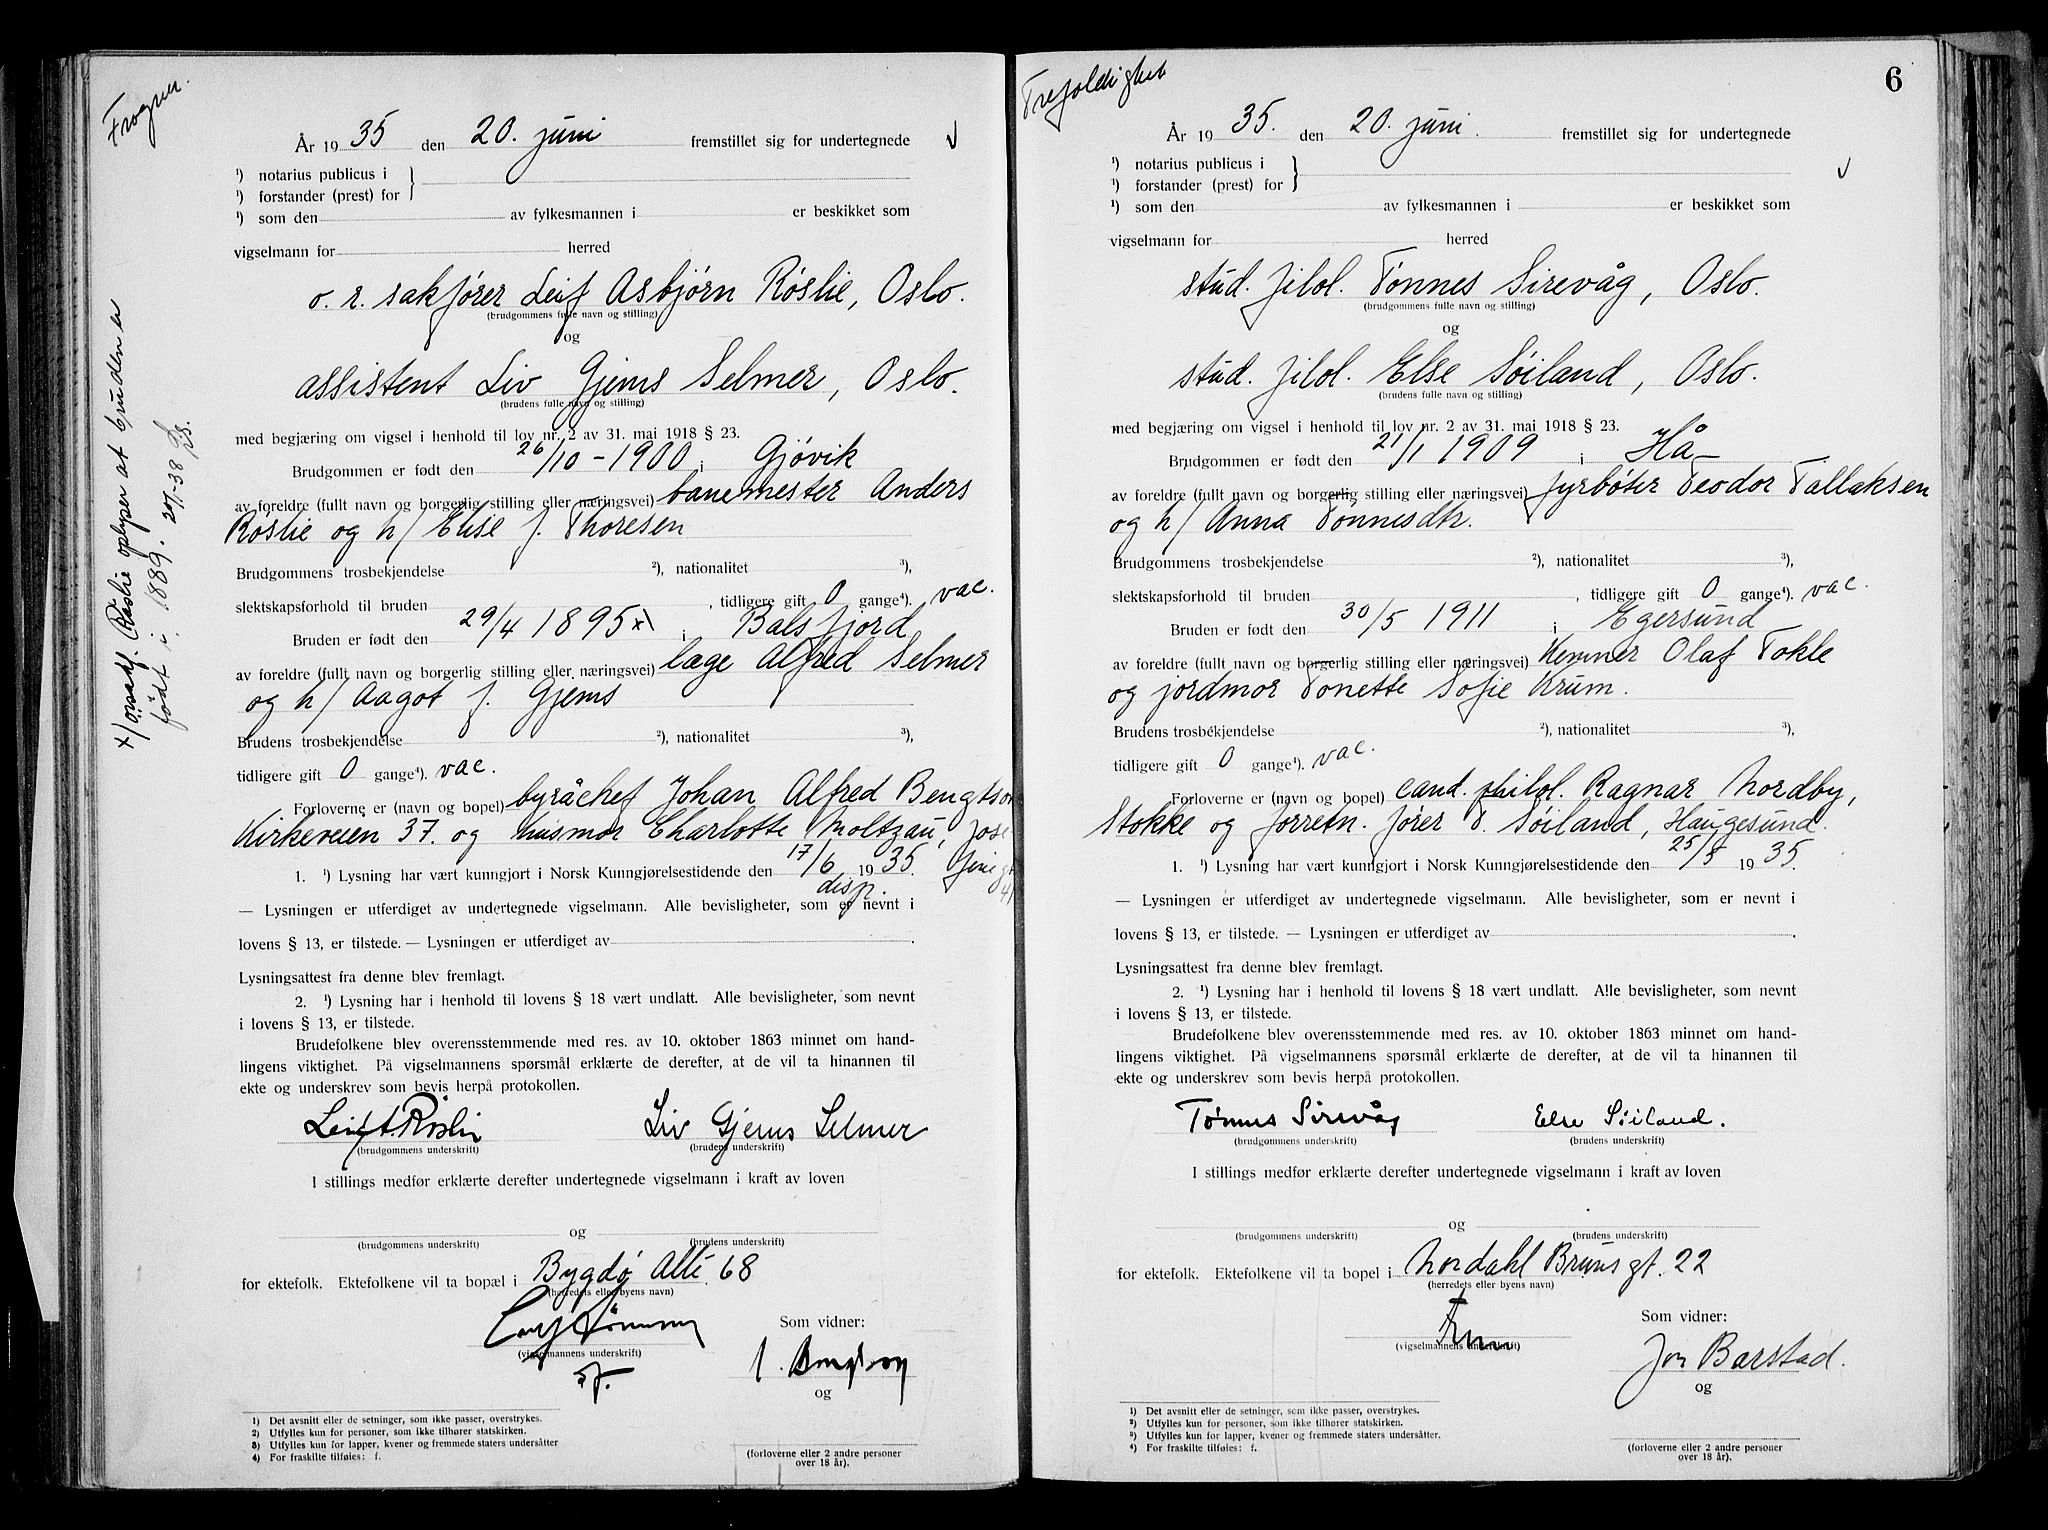 Frogner.
År 19 35 den 20. juni fremstillet sig for undertegnede
¹) notarius publicus i
¹) forstander (prest) for
¹) som den av fylkesmannen i er beskikket som
vigselmann for herred
o. r. sakfører Leif Asbjørn Røslie, Oslo.
(brudgommens fulle navn og stilling)
og
assistent Liv Gjems Selmer, Oslo.
(brudens fulle navn og stilling)
med begjæring om vigsel i henhold til lov nr. 2 av 31. mai 1918 § 23.
Brudgommen er født den 26/10 - 1900 i Gjøvik
av foreldre (fullt navn og borgerlig stilling eller næringsvei) banemester Anders
Røslie og h/ Elise f. Thoresen
Brudgommens trosbekjendelse ²), nationalitet ³),
slektskapsforhold til bruden , tidligere gift 0 gange⁴). vac.
Bruden er født den 29/4 1895 x) i Balsfjord
av foreldre (fullt navn og borgerlig stilling eller næringsvei) læge Alfred Selmer
og h/ Aagot f. Gjems
Brudens trosbekjendelse ²), nationalitet ³),
tidligere gift 0 gange⁴). vac.
Forloverne er (navn og bopel) byråchef Johan Alfred Bengtson
Kirkeveien 37. og husmor Charlotte Moltzau, Jose
1. ¹) Lysning har vært kunngjort i Norsk Kunngjørelsestidende den 17/6 19 35.
disp.
— Lysningen er utferdiget av undertegnede vigselmann. Alle bevisligheter, som er nevnt i
lovens § 13, er tilstede. — Lysningen er utferdiget av .
Lysningsattest fra denne blev fremlagt.
2. ¹) Lysning har i henhold til lovens § 18 vært undlatt. Alle bevisligheter, som nevnt
i lovens § 13, er tilstede.
Brudefolkene blev overensstemmende med res. av 10. oktober 1863 minnet om hand-
lingens viktighet. På vigselmannens spørsmål erklærte de derefter, at de vil ta hinannen til
ekte og underskrev som bevis herpå protokollen.
Leif A. Røslie Liv Gjems Selmer
(brudgommens underskrift) (brudens underskrift)
I stillings medfør erklærte derefter undertegnede vigselmann i kraft av loven
og
(brudgommens underskrift) (brudens underskrift)
for ektefolk. Ektefolkene vil ta bopæl i Bygdø Allé 68
(herredets eller byens navn)
Som vidner:
(vigselmannens underskrift)
og
1) Det avsnitt eller de setninger, som ikke passer, overstrykes.
2) Utfylles kun for personer, som ikke tilhører statskirken.
3) Utfylles kun for lapper, kvener og fremmede staters undersåtter
4) For fraskilte tilføies: f.
(forloverne eller 2 andre personer
over 18 år).
x) Røslie oplyser at bruden er
født i 1889. 20/1-38
Trefoldighet
6
År 19 35. den 20. juni. fremstillet sig for undertegnede
¹) notarius publicus i
¹) forstander (prest) for
¹) som den av fylkesmannen i er beskikket som
vigselmann for herred
stud. filol. Tønnes Sirevåg, Oslo.
(brudgommens fulle navn og stilling)
og
stud. filol. Else Søiland, Oslo.
(brudens fulle navn og stilling)
med begjæring om vigsel i henhold til lov nr. 2 av 31. mai 1918 § 23.
Brudgommen er født den 21/1 1909 i Hå
av foreldre (fullt navn og borgerlig stilling eller næringsvei) fyrbøter Teodor Tallaksen
og h/ Anna Tønnesdtr.
Brudgommens trosbekjendelse ²), nationalitet ³),
slektskapsforhold til bruden , tidligere gift 0 gange⁴). vac.
Bruden er født den 30/5 1911 i Egersund
av foreldre (fullt navn og borgerlig stilling eller næringsvei) kemner Olaf Tokle
og jordmor Tonette Sofie Krum.
Brudens trosbekjendelse ²), nationalitet ³),
tidligere gift 0 gange⁴). vac.
Forloverne er (navn og bopel) cand. philol. Ragnar Nordby,
Stokke og forretn. fører T. Søiland, Haugesund.
1. ¹) Lysning har vært kunngjort i Norsk Kunngjørelsestidende den 25/5 19 35.
— Lysningen er utferdiget av undertegnede vigselmann. Alle bevisligheter, som er nevnt i
lovens § 13, er tilstede. — Lysningen er utferdiget av .
Lysningsattest fra denne blev fremlagt.
2. ¹) Lysning har i henhold til lovens § 18 vært undlatt. Alle bevisligheter, som nevnt
i lovens § 13, er tilstede.
Brudefolkene blev overensstemmende med res. av 10. oktober 1863 minnet om hand-
lingens viktighet. På vigselmannens spørsmål erklærte de derefter, at de vil ta hinannen til
ekte og underskrev som bevis herpå protokollen.
Tønnes Sirevåg Else Søiland.
(brudgommens underskrift) (brudens underskrift)
I stillings medfør erklærte derefter undertegnede vigselmann i kraft av loven
og
(brudgommens underskrift) (brudens underskrift)
for ektefolk. Ektefolkene vil ta bopel i Nordahl Bruns gt. 22
(herredets eller byens navn)
Som vidner:
(vigselmannens underskrift)
Jon Barstad.
og
1) Det avsnitt eller de setninger, som ikke passer, overstrykes.
2) Utfylles kun for personer, som ikke tilhører statskirken.
3) Utfylles kun for lapper, kvener og fremmede staters undersåtter.
4) For fraskilte tilføies: f.
(forloverne eller 2 andre personer
over 18 år).